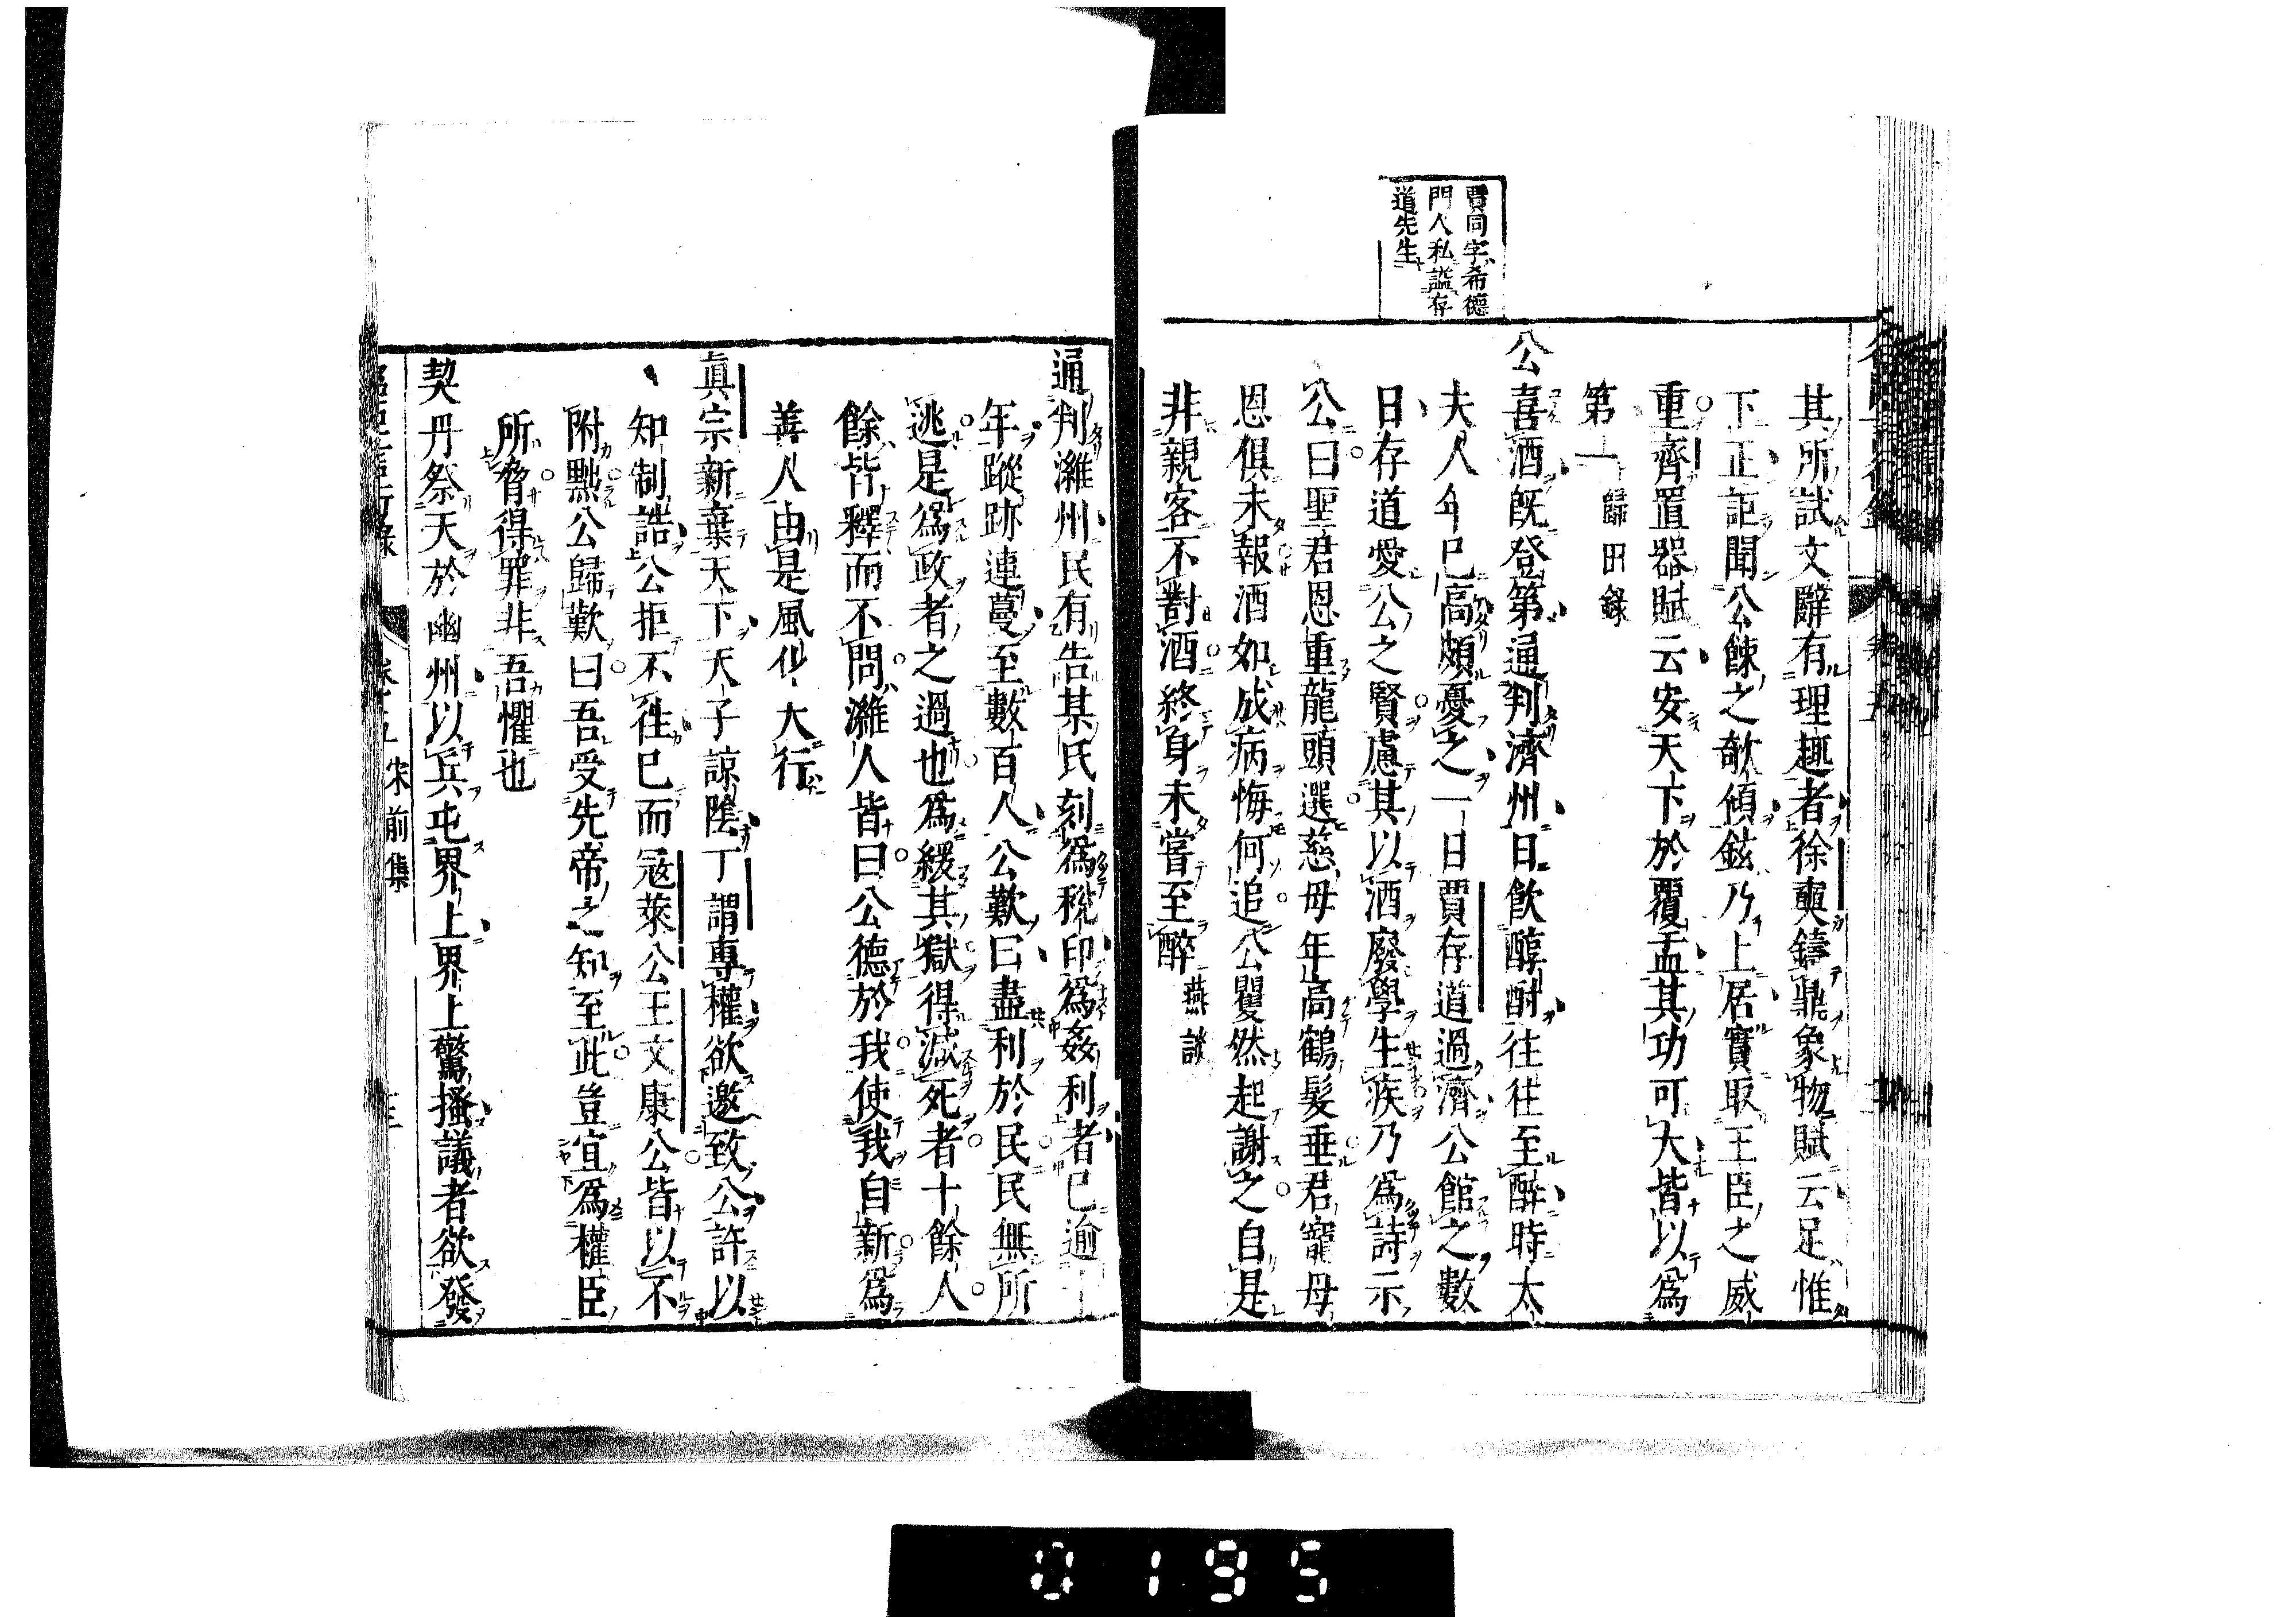 賈同字希德
門人私謚存
道先生
其所試文辭有理趣者徐奭鑄鼎象物賦云足惟
下正詎聞公餗之欹傾鉉乃上居實取王臣之威
重齊置器賦云安天下於覆盂其功可大皆以爲
第一歸田錄
公喜酒旣登第通判濟州日飲醇酎往往至醉時太
夫人年巳高頗憂之一日賈存道過濟公館之數
日存道愛公之賢慮其以酒廢學生疾乃爲詩示
公曰聖君恩重龍頭選慈母年高鶴髮垂君寵母
恩俱未報酒如成病悔何追公瞿然起謝之自是
非親客不對酒終身未嘗至醉燕談
通判濰州民有告某氏刻爲稅印爲姦利者已逾十
年蹤跡連蔓至數百人公歎曰盡利於民民無所
逃是爲政者之過也爲緩其獄得減死者十餘人
餘皆釋而不問濰人皆曰公德於我使我自新爲
善人由是風化大行
眞宗新棄天下天子諒陰丁謂專權欲邀致公許以
知制誥公拒不往已而寇萊公王文康公皆以不
附黜公歸歎曰吾受先帝之知至此豈宜爲權臣
所脅得罪非吾懼也
契丹祭天於幽州以兵屯界上界上驚搔議者欲發
卷五 宋前集
0195